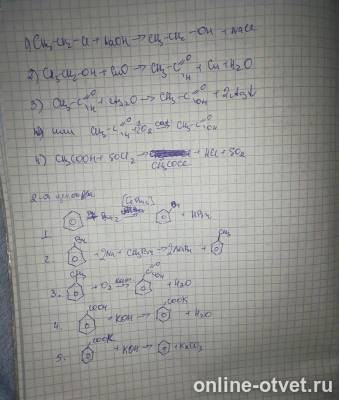 1) CH₃CH₂-Cl + NaOH → CH₃-CH₂-OH + NaCl
2) CH₃CH₂-OH + CuO → CH₃-C=O H + Cu + H₂O
3) CH₃-C=O H + → CH₃-C=O OH + 2Ag↓
или CH₃-C=O H + O₂ → CH₃-C=O OH
4) CH₃COOH + SOCl₂ → + HCl + SO₂
CH₃COCl
2-я цепочка
1. Br₂ → Br + HBr
2. Br + 2Na + CH₃Br → 2NaBr + CH₃
3. CH₃ + O₂ → C=O OH + H₂O
4. COOH + KOH → COOK + H₂O
5. COOK + KOH → + K₂CO₃
online-otvet.ru